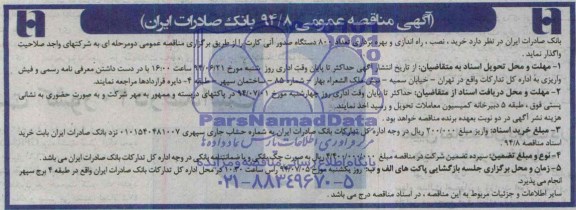 (آگهی مناقصه عمومی ۹۴/۸ بانک صادرات ایران)
بانک صادرات ایران در نظر دارد خرید ، نصب ، راه اندازی و بهره‌برداری تعداد ۸۰۰ دستگاه صدور آنی کارت را از طریق برگزاری مناقصه عمومی دو مرحله ای به شرکتهای واجد صلاحیت
واگذار نماید.
۱- مهلت و محل تحویل اسناد به متقاضیان: از تاریخ انتشار آگهی حداکثر تا پایان وقت اداری روز شنبه مورخ ۹۴/۰۶/۲۱ ساعت ۱۶:۰۰ با در دست داشتن معرفی نامه رسمی و فیش
واریزی به اداره کل تدارکات واقع در تهران – خیابان سمیه – بین ملک الشعراء بهار و شماره ساختمان سپهر – طبقه ۴ - دایره قراردادها مراجعه نمایند.
۲- مهلت و محل دریافت اسناد از متقاضیان: حداکثر تا پایان وقت اداری روز چهارشنبه مورخ ۹۴/۰۷/۰۱ در پاکتهای دربسته و ممهور به مهر شرکت و به صورت حضوری به نشانی
پستی فوق ، طبقه ۵ دبیرخانه کمیسیون معاملات تحویل و رسید اخذ نمایند.
هزینه نشر آگهی در دو نوبت بعهده برنده مناقصه خواهد بود.
۳- مبلغ خرید اسناد: واریز مبلغ ۲۰۰/۰۰۰ ریال در وجه اداره کل تدارکات بانک صادرات ایران به شماره حساب جاری سپهری ۰۱۰۱۵۴۰۴۸۱۰۰۷ نزد بانک صادرات ایران بابت خرید
اسناد مناقصه ۹۴/۸
۴- نوع و مبلغ تضمین: سپرده تضمین شرکت در مناقصه مبلغ ریال به صورت چک بانکی یا ضمانتنامه بانکی در وجه اداره کل تدارکات بانک صادرات ایران می باشد.
۵- زمان و محل برگزاری جلسه بازگشایی پاکت های الف و ب: روز یکشنبه مورخ ۹۴/۰۷/۰۵ راس ساعت ۱۰:۳۰ در محل اداره کل تدارکات بانک صادرات ایران واقع در طبقه ۴ برج سپهر
انجام می پذیرد.
سایر اطلاعات و جزئیات مربوط به این مناقصه ، در اسناد مناقصه درج می باشد .
ParsNamadData
پایگاه اطلاع رسانی مناقصه و مزایده
۰۲۱-۸۸۳۴۹۶۷۰-۵